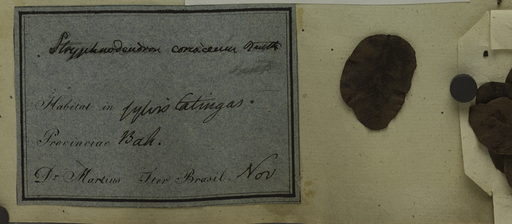 Stryphnodendron coriaceum Benth
Habitat in sylvis Catingas.
Provinciae Bah.
Dr. Martius Iter Brasil. Nov